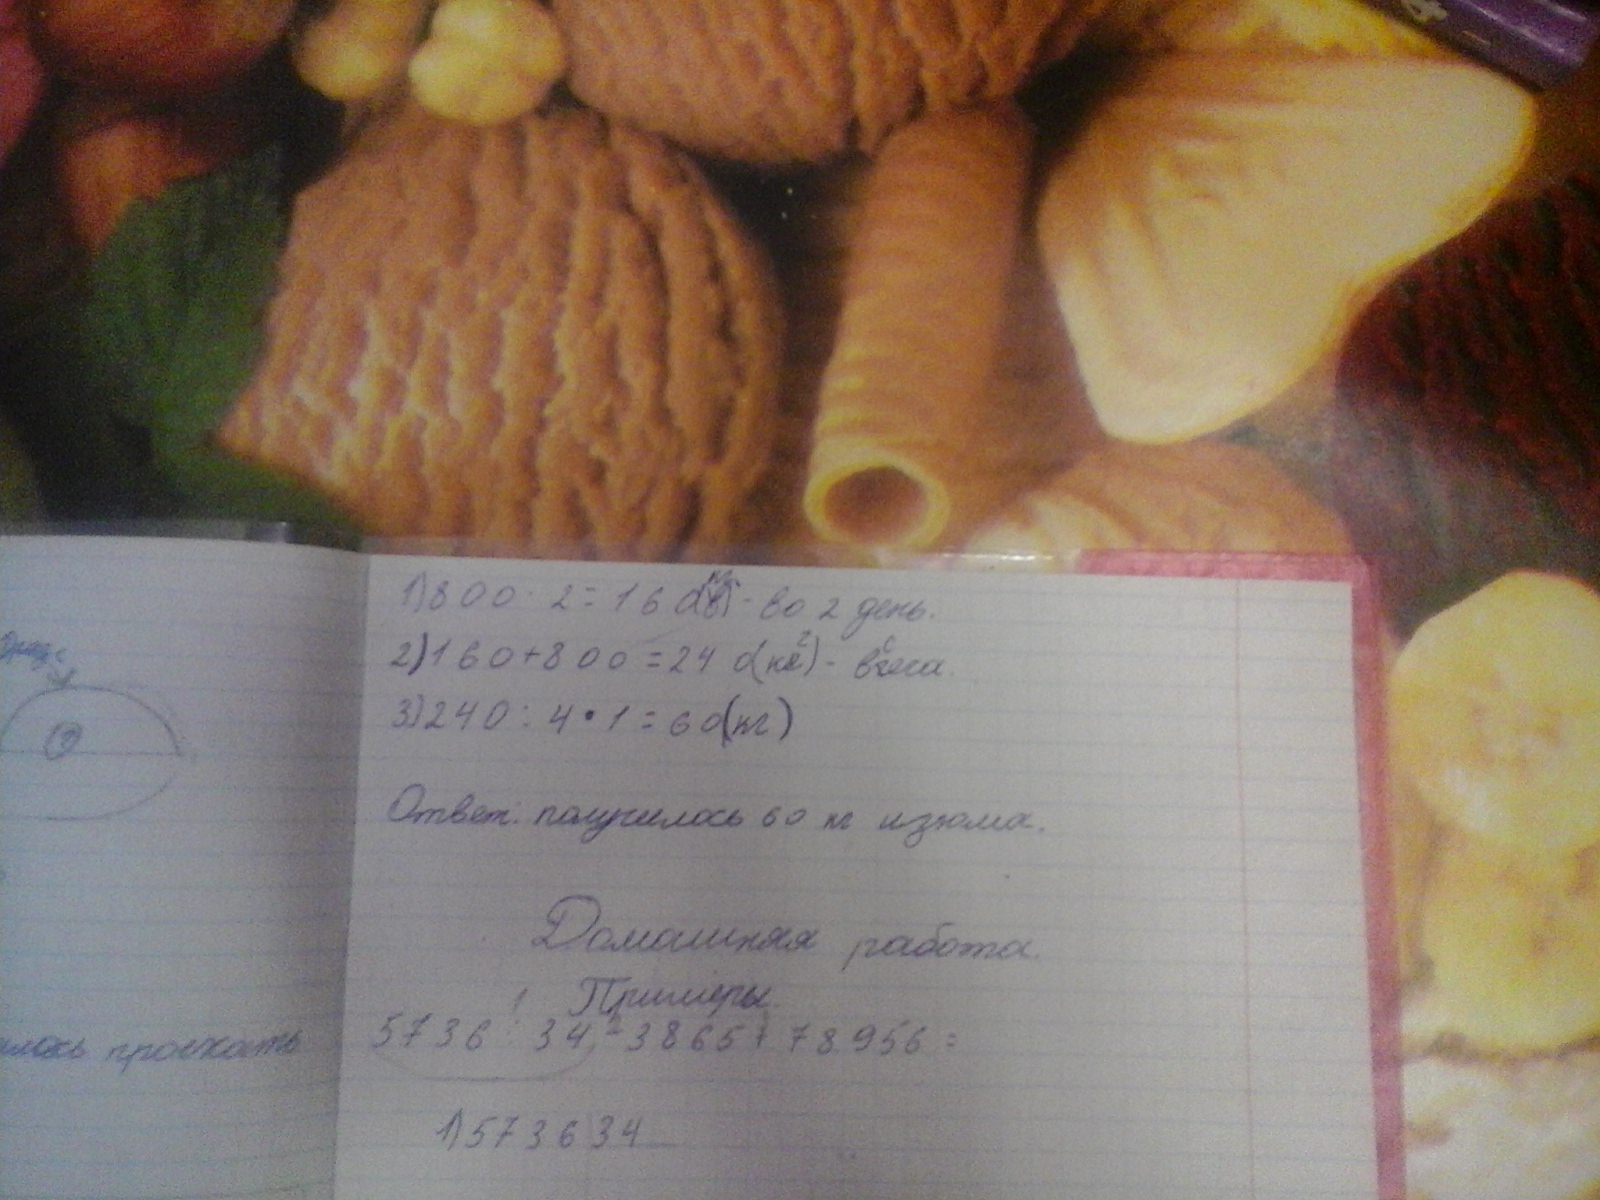 1) 800 : 2 = 160(кг) - во 2 день.
2) 160 + 800 = 240(кг) - всего.
3) 240 : 4 • 1 = 60(кг)
Ответ: получилось 60 кг изюма.
Домашняя работа.
Примеры.
проехать
5736 : 34 - 3865 + 78956 =
1) 5736 34